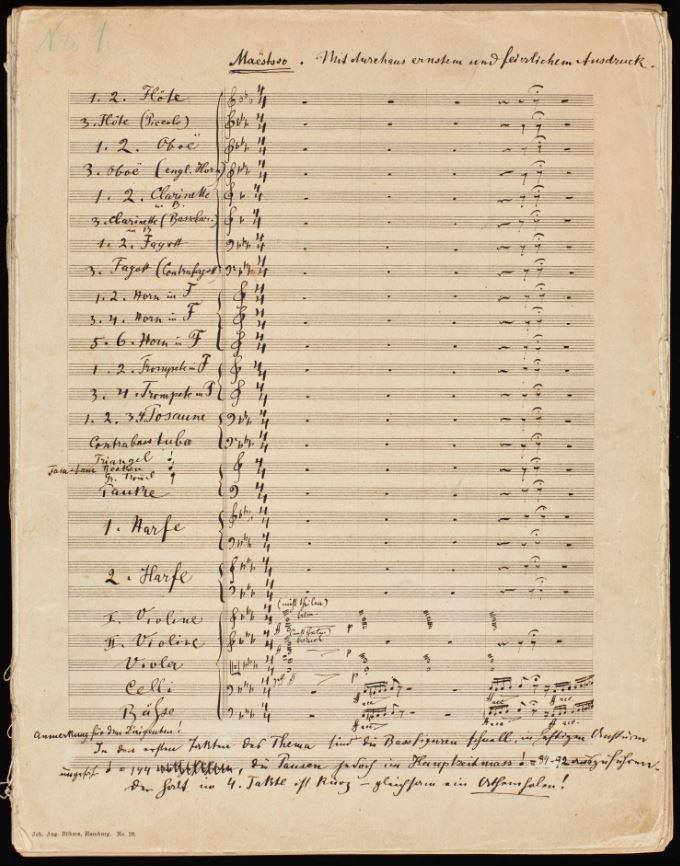 No 1
Maëstoso. Mit durchaus ernstem und feierlichem Ausdruck.
1. 2. Flöte
3. Flöte (Piccolo)
1. 2. Oboë
3. Oboë (engl. Horn)
1. 2. Clarinette
in B.
3. Clarinette (Bassclar.)
in B
1. 2. Fagott
3. Fagott (Contrafagott)
1. 2. Horn in F
3. 4. Horn in F
5. 6. Horn in F
1. 2. Trompete in F
3. 4. Trompete in F
1. 2. 3. 4. Posaune
Contrabass tuba
Triangel
Tam-tam Becken
Gr. Trom̄el
Pauke
1. Harfe
2. Harfe
(nicht theilen)
I. Violine
ff p
(nicht theilen)
II. Violine
Viola
ff p
Celli
ff ff ff
Bässe
ff ff ff
Anmerkung für den Dirigenten!
In den ersten Takten des Thema sind die Bassfiguren schnell, in heftigem Ansturm
ungefähr = 144, die Pausen jedoch im Hauptzeitmass = 84-92 auszuführen.
Der Halt im 4. Takte ist kurz – gleichsam ein Athemholen!
Joh. Aug. Böhme, Hamburg. No.